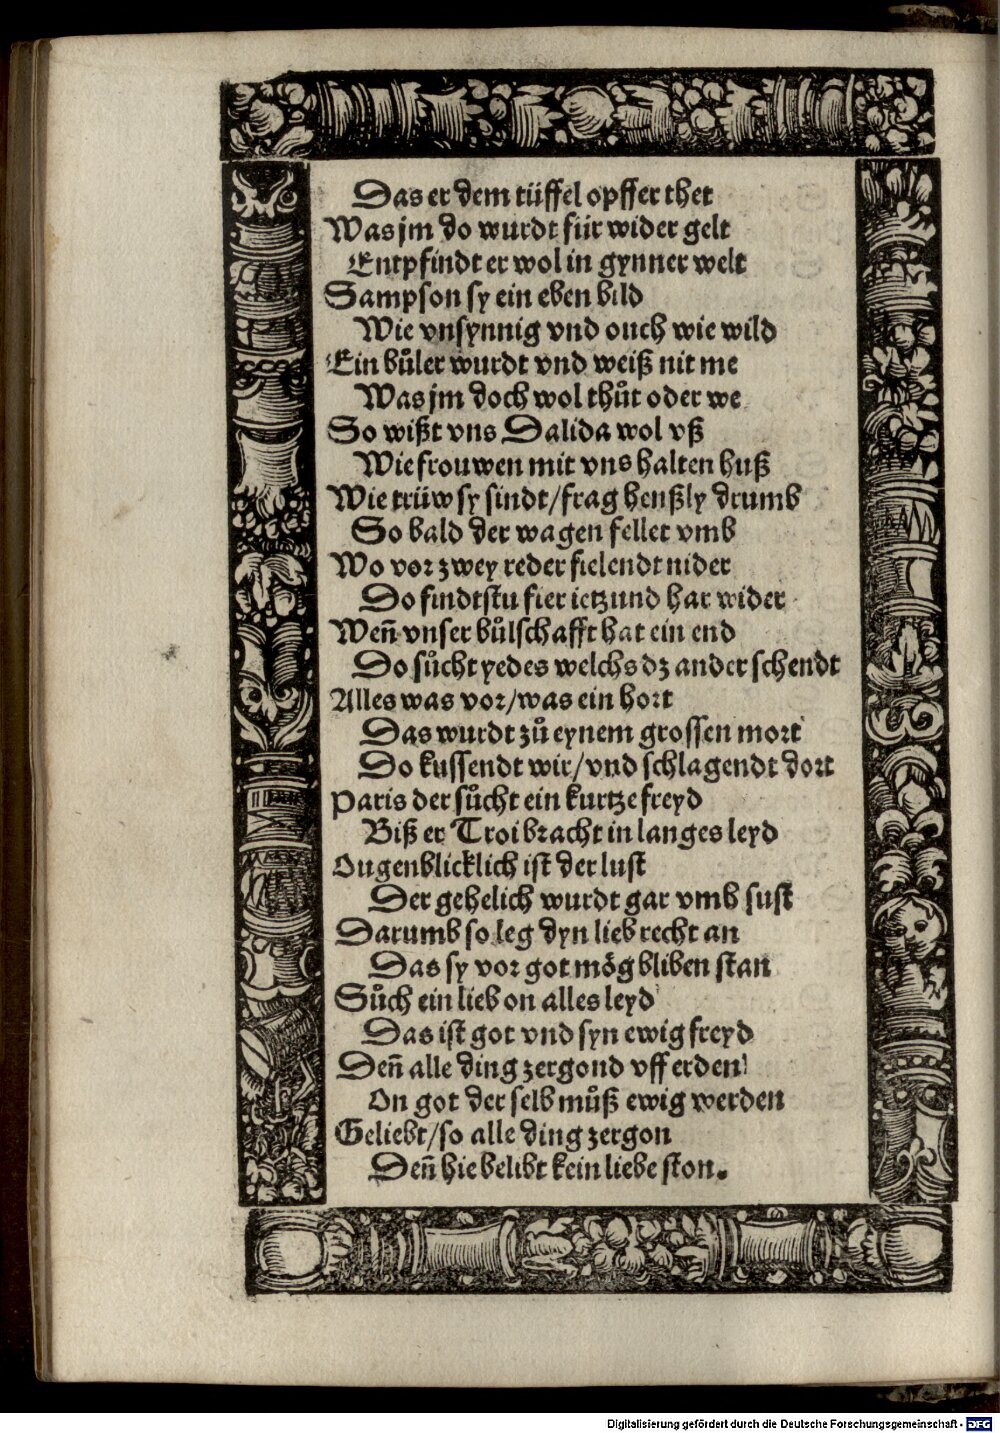 Das er dem tüffel opffer thet
Was jm do wurdt für wider gelt
Entpfindt er wol in gynner welt
Sampson sy ein eben bild
Wie vnsynnig vnd ouch wie wild
Ein bůler wurdt vnd weiß nit me
Was jm doch wol thůt oder we
So wißt vns Dalida wol vß
Wie frouwen mit vns halten huß
Wie trüw sy sindt/frag henßly drumb
So bald der wagen fellet vmb
Wo vor zwey reder fielendt nider
Do findtstu fier ietzund har wider
Wen̄ vnser bůlschafft hat ein end
Do sůcht yedes welchs dz ander schendt
Alles was vor/was ein hort
Das wurdt zů eynem grossen mort
Do kussendt wir/vnd schlagendt dort
Paris der sůcht ein kurtze freyd
Biß er Troi bracht in langes leyd
Ougenblicklich ist der lust
Der gehelich wurdt gar vmb sust
Darumb so leg dyn lieb recht an
Das sy vor got mög bliben stan
Sůch ein lieb on alles leyd
Das ist got vnd syn ewig freyd
Den̄ alle ding zergond vff erden
On got der selb můß ewig werden
Geliebt/so alle ding zergon
Den̄ hie belibt kein liebe ston.
Digitalisierung gefördert durch die Deutsche Forschungsgemeinschaft - DFG